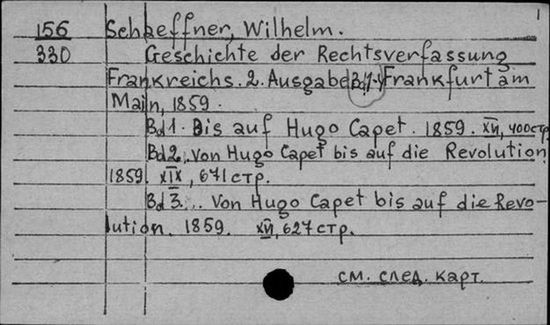 1
156 Schaeffner, Wilhelm.
330 Geschichte der Rechtsverfassung
Frankreichs. 2. Ausgabe. Frankfurt am
Main, 1859.
Bd 1. Bis auf Hugo Capet. 1859. XVI, 400стр.
Bd 2. Von Hugo Capet bis auf die Revolution
1859. XIX, 671 стр.
Bd 3... Von Hugo Capet bis auf die Revo-
lution. 1859. XVI, 627 стр.
см. след. карт.